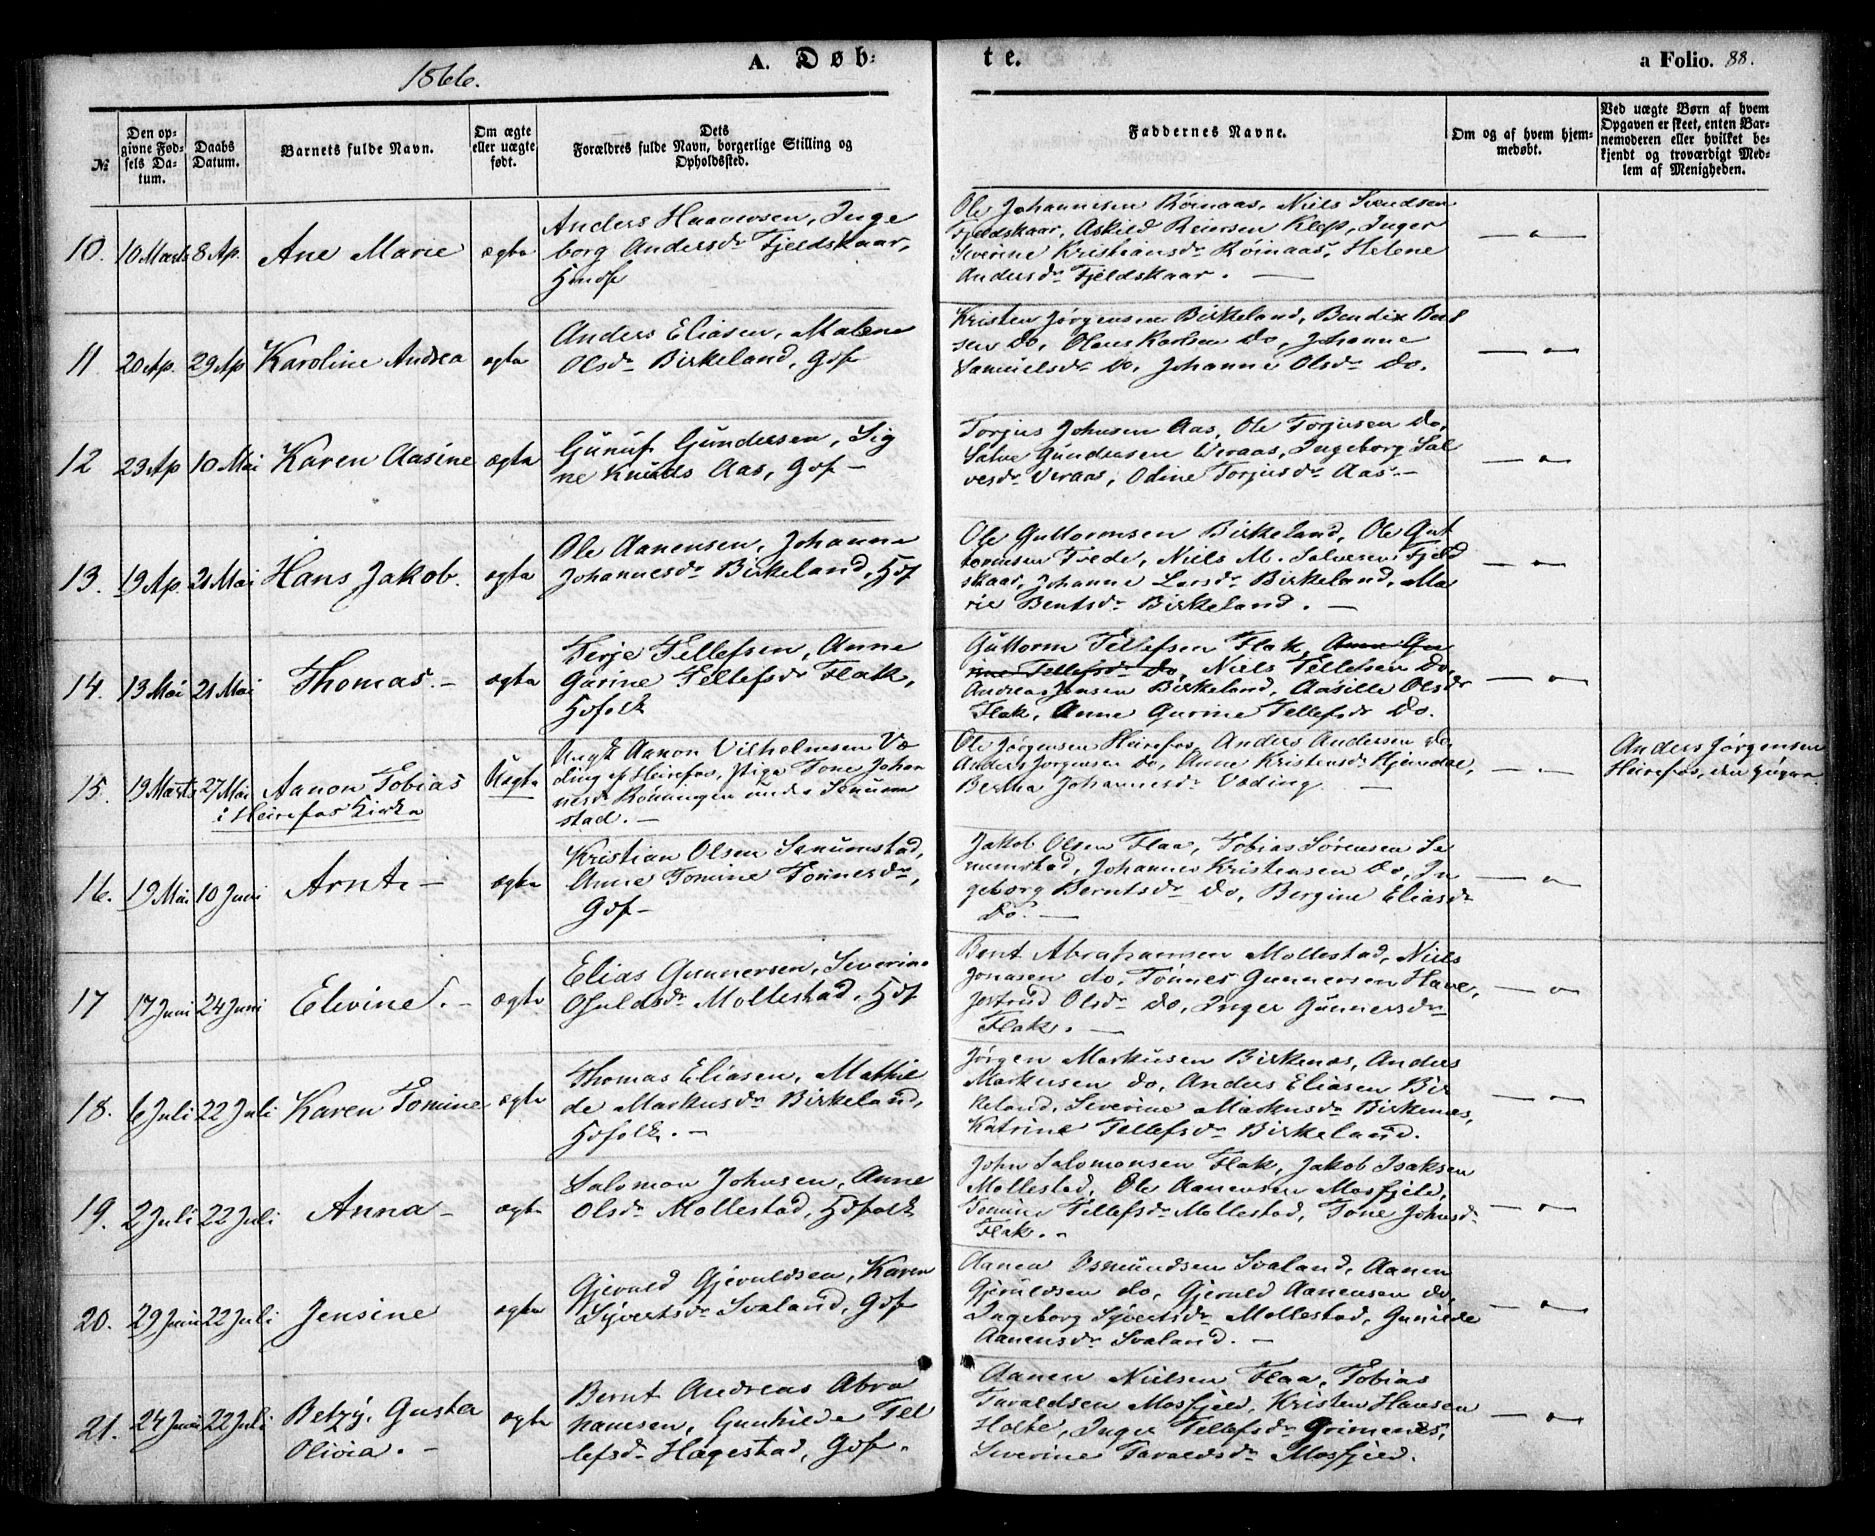 1866.
A. Døb-
te.
a Folio. 88.
№
Den op-
givne Fød-
sels Da-
tum.
Daabs
Datum.
Barnets fulde Navn.
Om ægte
eller uægte
født.
Dets
Forældres fulde Navn, borgerlige Stilling og
Opholdssted.
Faddernes Navne.
Om og af hvem hjem-
medøbt.
Ved uægte Børn af hvem
Opgaven er skeet, enten Bar-
nemoderen eller hvilket be-
kjendt og troværdigt Med-
lem af Menigheden.
10. 10 Marts 8 Ap. Ane Marie ægte
Anders Haavorsen, Inge
borg Andersdr Fjeldskaar,
Ole Johannesen Röinaas, Niels Svendsen
Fjeldskaar, Askild Reiersen Klep, Inger
Severine Kristiansdr Röinaas, Helene
Andersdr Fjeldskaar. —
— " —
11 20 Ap. 29 Ap Karoline Andrea ægte
Anders Eliasen, Malene
Olsdr Birkeland, Gdf
Kristen Jørgensen Birkeland, Bendix Bent
sen Do, Olaus Karlsen Do, Johanne
Samuelsdr Do, Johanne Olsdr Do.
— " —
12 23 Ap 10 Mai Karen Aasine ægte
Gunuf Gundersen, Sig
ne Knuds Aas, Gdf —
Torjus Johnsen Aas, Ole Torjusen Do,
Salve Gundersen Veraas, Ingeborg Sal
vesdr Veraas, Odine Torjusdr Aas. —
— " —
13. 19 Ap. 21 Mai Hans Jakob. ægte
Ole Aanensen, Johanne
Johannesdr Birkeland, Hdf
Ole Guttormsen Birkeland, Ole Gut
tormsen Trede, Niels M. Salvesen Fjeld
skaar, Johanne Larsdr Birkeland, Ma
rie Bentsdr Birkeland. —
— " —
14. 13 Mai 21 Mai Thomas. — ægte
Terje Tellefsen, Anne
Gurine Tellefsdr Flak,
Hdfolk
Guttorm Tellefsen Flak, Anne Gu
rine Tellefsdr Do, Niels Tellefsen Do,
Andreas Jensen Birkeland, Aasille Olsdr
Flak, Anne Gurine Tellefsdr Do.
— " —
15. 19 Marts 27 Mai Aanon Tobias Uægte
i Heirefos Kirke
Ungk Aanon Vilhelmsen Væ
ding af Heirefos, Pige Tone Johan
nesdr Rönningen under Senum
stad. —
Ole Jørgensen Heirefos, Anders Andersen do,
Anders Jørgensen Do, Anne Kristensdr
Bertha Johannesdr Væding —
— " —
Anders Jørgensen
Heirefos,
16. 19 Mai 10 Juni Arnt. — ægte
Kristian Olsen Senumstad,
Anne Tomine Tönnesdr,
Gdf —
Jakob Olsen Flaa, Tobias Sørensen Se
numstad, Johannes Kristensen Do, In
geborg Berntsdr Do, Bergine Eliasdr
Do. —
— " —
17 17 Juni 24 Juni Elevine. — ægte
Elias Gunnersen, Severine
Osuldsdr Mollestad, Hdf
Bent Abrahamsen Mollestad, Niels
Jonasen do, Tönnes Gunnersen Have,
Jostrud Olsdr Do, Inger Gunnersdr
Flak. —
— " —
18. 6 Juli 22 Juli Karen Tomine ægte
Thomas Eliasen, Mathil
de Markusdr Birkeland,
Hdfolk. —
Jørgen Markusen Birkenes, Anders
Markusen do, Anders Eliasen Bir
keland, Severine Markusdr Birkenes,
Katrine Tellefsdr Birkeland.
— " —
19. 2 Juli 22 Juli Anna — ægte
Salomon Johnsen, Anne
Olsdr Mollestad, Hdfolk
John Salomonsen Flak, Jakob Isaksen
Mollestad, Ole Aanensen Mosfjeld,
Tomine Tellefsdr Mollestad, Tone Johnsdr
Flak. —
— " —
20. 29 Juni 22 Juli Jensine ægte
Gjeruld Gjeruldsen, Karen
Syvertsdr Svaland, Gdf
Aanen Osmundsen Svaland, Aanen
Gjeruldsen do, Gjeruld Aanensen do,
Ingeborg Syvertsdr Mollestad, Gunilde
Aanensdr Svaland. —
— " —
21. 24 Juni 22 Juli Betzy Gusta ægte
Olivia. —
Bernt Andreas Abra
hamsen, Gunhilde Tel
lefsdr Hægestad, Gdf.
Aanen Nielsen Flaa, Tobias
Taraldsen Mosfjeld, Kristen Hansen
Holte, Inger Tellefsdr Grimenes,
Severine Taraldsdr Mosfjeld.
— " —